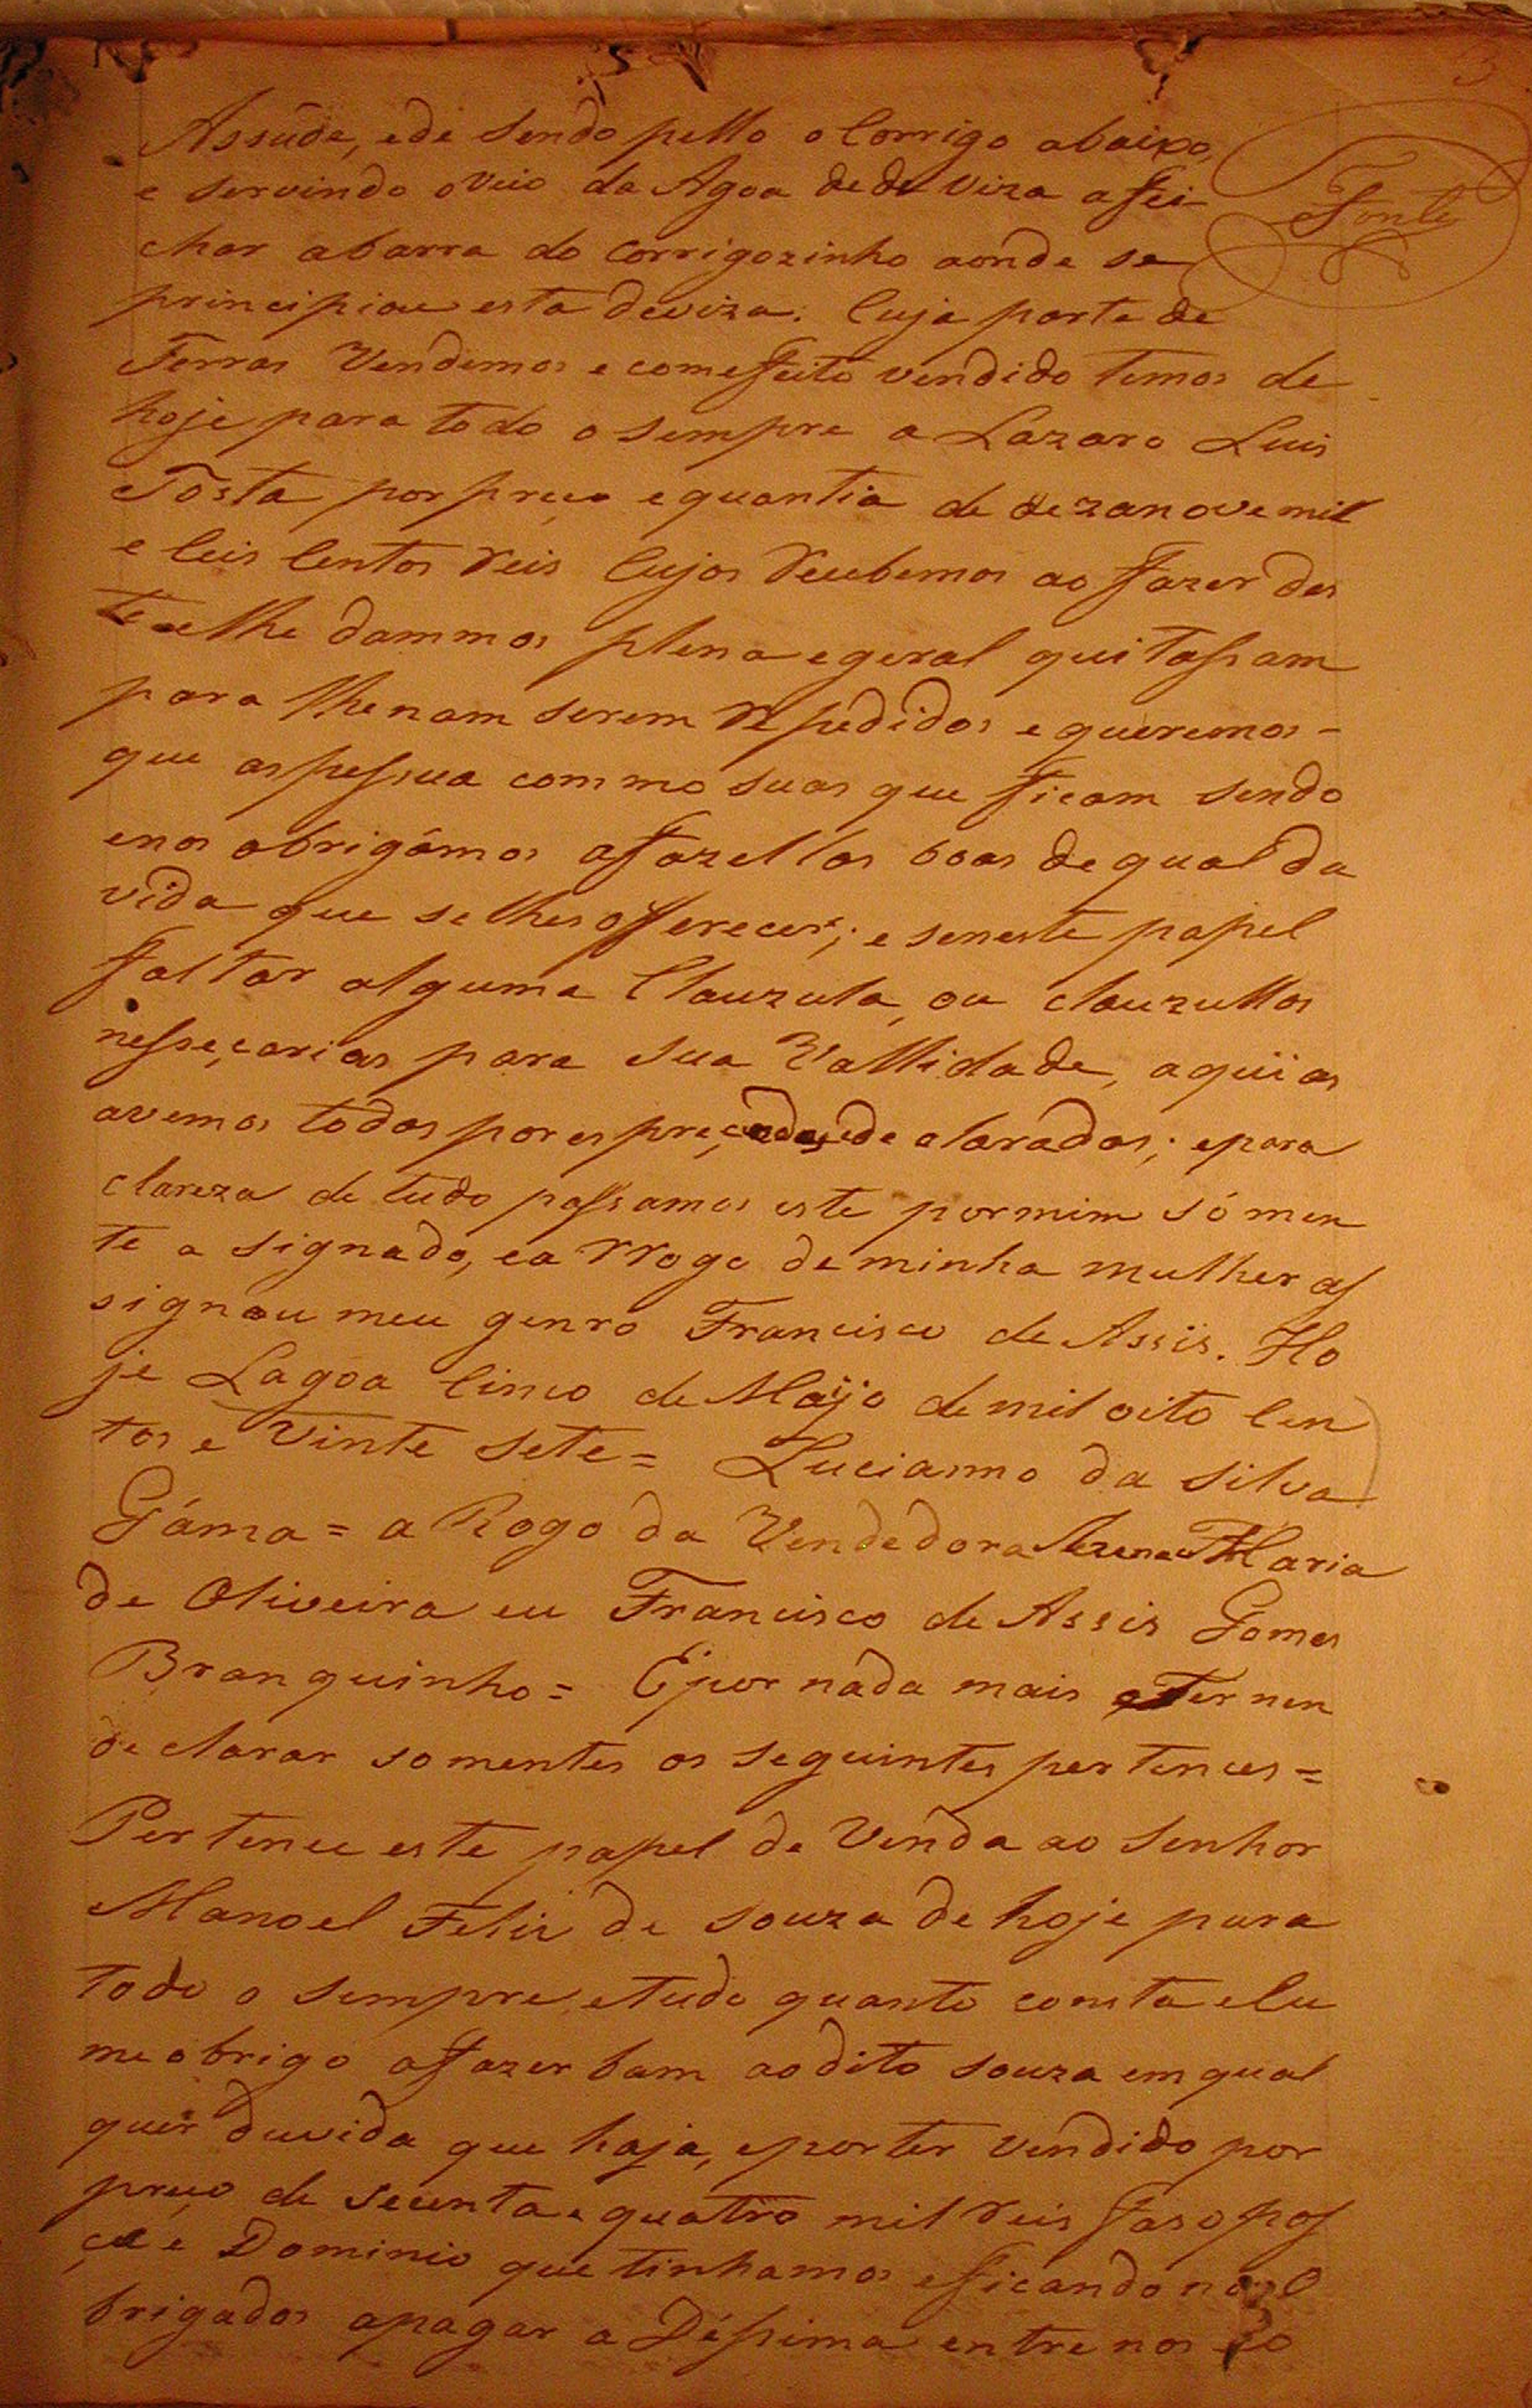 3
Assúde, ede sendo pello o Corrigo abaixo,
e servindo oveio da Agoa de de viza afei
char abarra do corrigozinho aonde se
Fonte
principiou esta deviza. Cuja parte de
Terras Vendemos e comefeito vendido temos de
hoje para todo o sempre a Lazaro Luis
Tosta por preço equantia de dezanove mil
e Ceis Centos Reis Cujos Recebemos ao fazer des
te elhe dammos plena egeral quitassam
para lhenam serem Repedidos e queremos-
que aspessua commo suas que ficam sendo
enos obrigámos afazellas boas de qual du
vida que selhes offerecer; e seneste papel
faltar alguma Clauzula, ou clauzullas
nesseçarias para sua Vallidade, aquï as
avemos todas por espreçadas, ede claradas; epara
clareza de tudo passamos este pormim só men
te a signado, ea rrogo deminha mulher as
signou meu genro Francisco de Assis. Ho
je Lagoa Cinco de Maÿo demil oito Cen
tos e Vinte sete= Lucianno da silva
Gáma= a Rogo da Vendedora Maria
de Oliveira eu Francisco de Assis Gomes
Branquinho= Epor náda mais Ter nen
declarar somentes os seguintes pertences=
Pertence este papel de Venda ao senhor
Manoel Felis de souza de hoje para
todo o sempre, etudo quanto consta e Eu
me obrigo afazer bam aodito souza em qual
quer duvida que haja, eporter vendido por
preço de secenta e quatro mil Reis faso pos
ça e Dominio que tinhamos eficando nós O
brigados apagar a Déssima entre nos